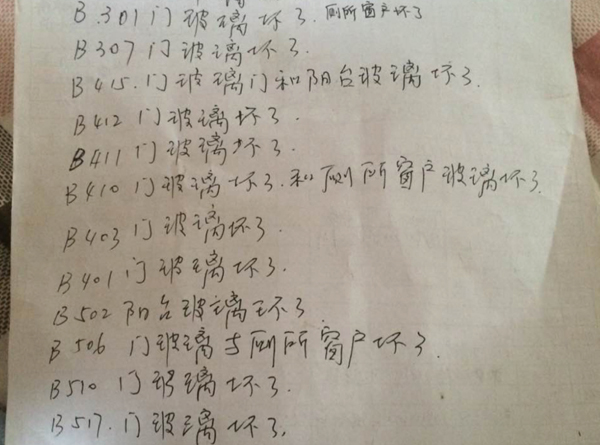 B.301门玻璃坏了.厕所窗户坏了
B307门玻璃坏了
B415.门玻璃门和阳台玻璃坏了.
B412门玻璃坏了.
B411门玻璃坏了.
B410门玻璃坏了.和厕所窗户玻璃坏了.
B403门玻璃坏了.
B401门玻璃坏了.
B502阳台玻璃坏了
B506门玻璃与厕所窗户坏了.
B510门玻璃坏了.
B517.门玻璃坏了.